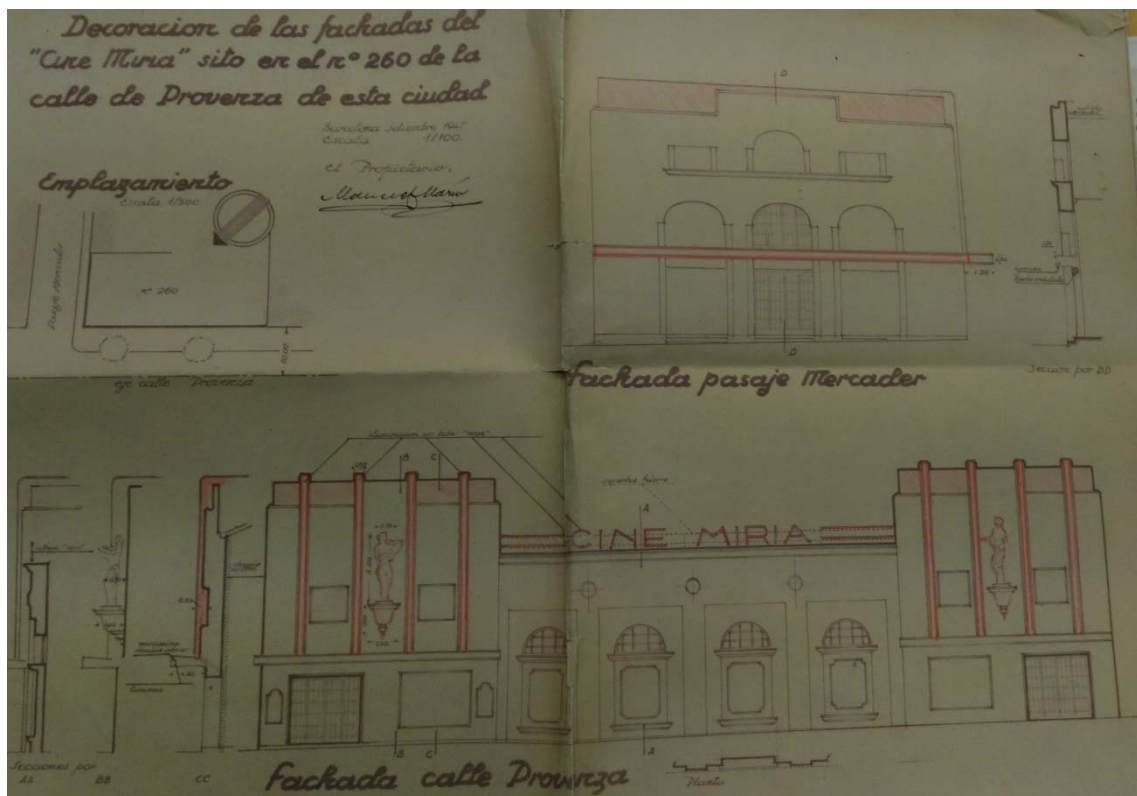 Decoracion de las fachadas del
"Cine Miria" sito en el nº 260 de la
calle de Provenza de esta ciudad
Barcelona setiembre
Escala 1/100.
El Propietario,
Emplazamiento
Escala 1/500
nº 260
Pasaje Mercader
10.00
eje calle Provenza
D
D
1.20
Fachada pasaje Mercader
Seccion por DD
B
C
A
CINE MIRIA
B
C
A
Secciones por
AA
BB
CC
Fachada calle Provenza
Planta